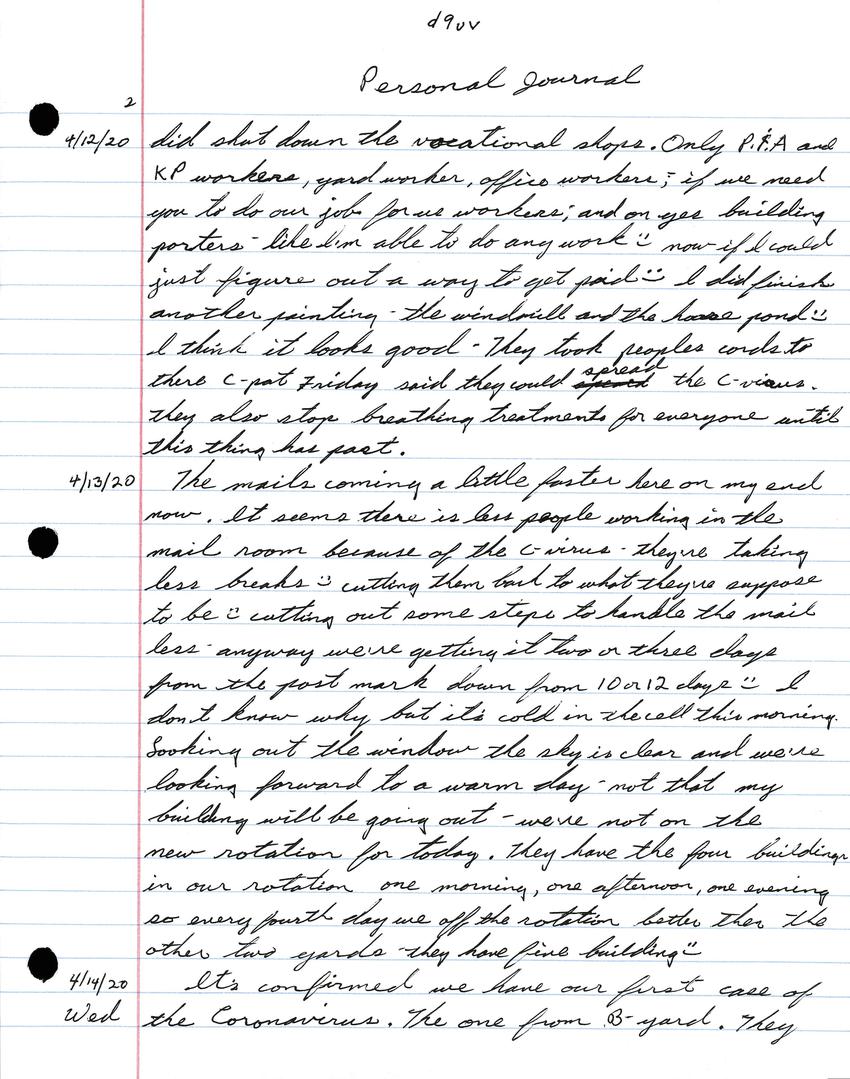 d9uv
Personal Journal
2
4/12/20 did shut down the vocational shops. Only P.F.A and
KP workers, yard worker, office workers; if we need
you to do our job for us workers; and on yes building
porters - like I'm able to do any work :) now if I could
just figure out a way to get paid :) I did finish
another painting - the windmill and the house pond :)
I think it looks good - They took peoples cords to
there C-pat Friday said they could spread the C-virus.
they also stop breathing treatments for everyone until
this thing has past.
4/13/20 The mails coming a little faster here on my end
now. It seems there is less people working in the
mail room because of the C-virus - they're taking
less breaks :) cutting them back to what they're suppose
to be :) cutting out some steps to handle the mail
less - anyway we're getting it two or three days
from the post mark down from 10 or 12 days :) I
don't know why but it's cold in the cell this morning.
Looking out the window the sky is clear and we're
looking forward to a warm day - not that my
building will be going out - we're not on the
new rotation for today. They have the four buildings
in our rotation one morning, one afternoon, one evening
so every fourth day we off the rotation better then the
other two yards - they have five building :)
4/14/20 It's confirmed we have our first case of
Wed the Coronavirus. The one from B-yard. They